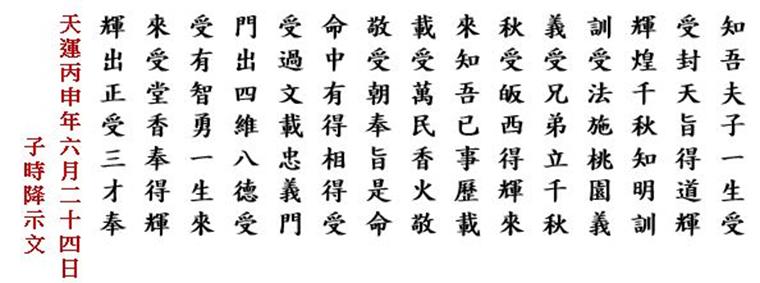 知吾夫子一生受
受封天旨得道輝
輝煌千秋知明訓
訓受法施桃園義
義受兄弟立千秋
秋受皈西得輝來
來知吾己事歷載
載受萬民香火敬
敬受朝奉旨是命
命中有得相得受
受過文載忠義門
門出四維八德受
受有智勇一生來
來受堂香奉得輝
輝出正受三才奉
天運丙申年六月二十四日
子時降示文